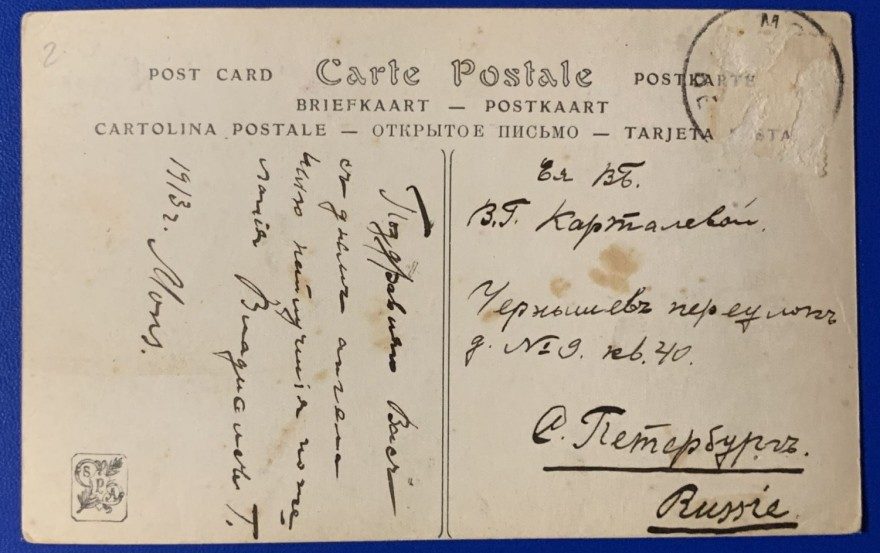 2.
POST CARD Carte Postale POSTKARTE
BRIEFKAART — POSTKAART
CARTOLINA POSTALE — ОТКРЫТОЕ ПИСЬМО — TARJETA
Поздравляю Васъ
съ днемъ ангела
наилучшія поже-
ланія
1913 г. Mons.
Ея ВБ.
В.Г. Карталевой.
Чернышевъ переулокъ
д. № 9. кв. 40.
С. Петербургъ.
Russie.
S.P.A.